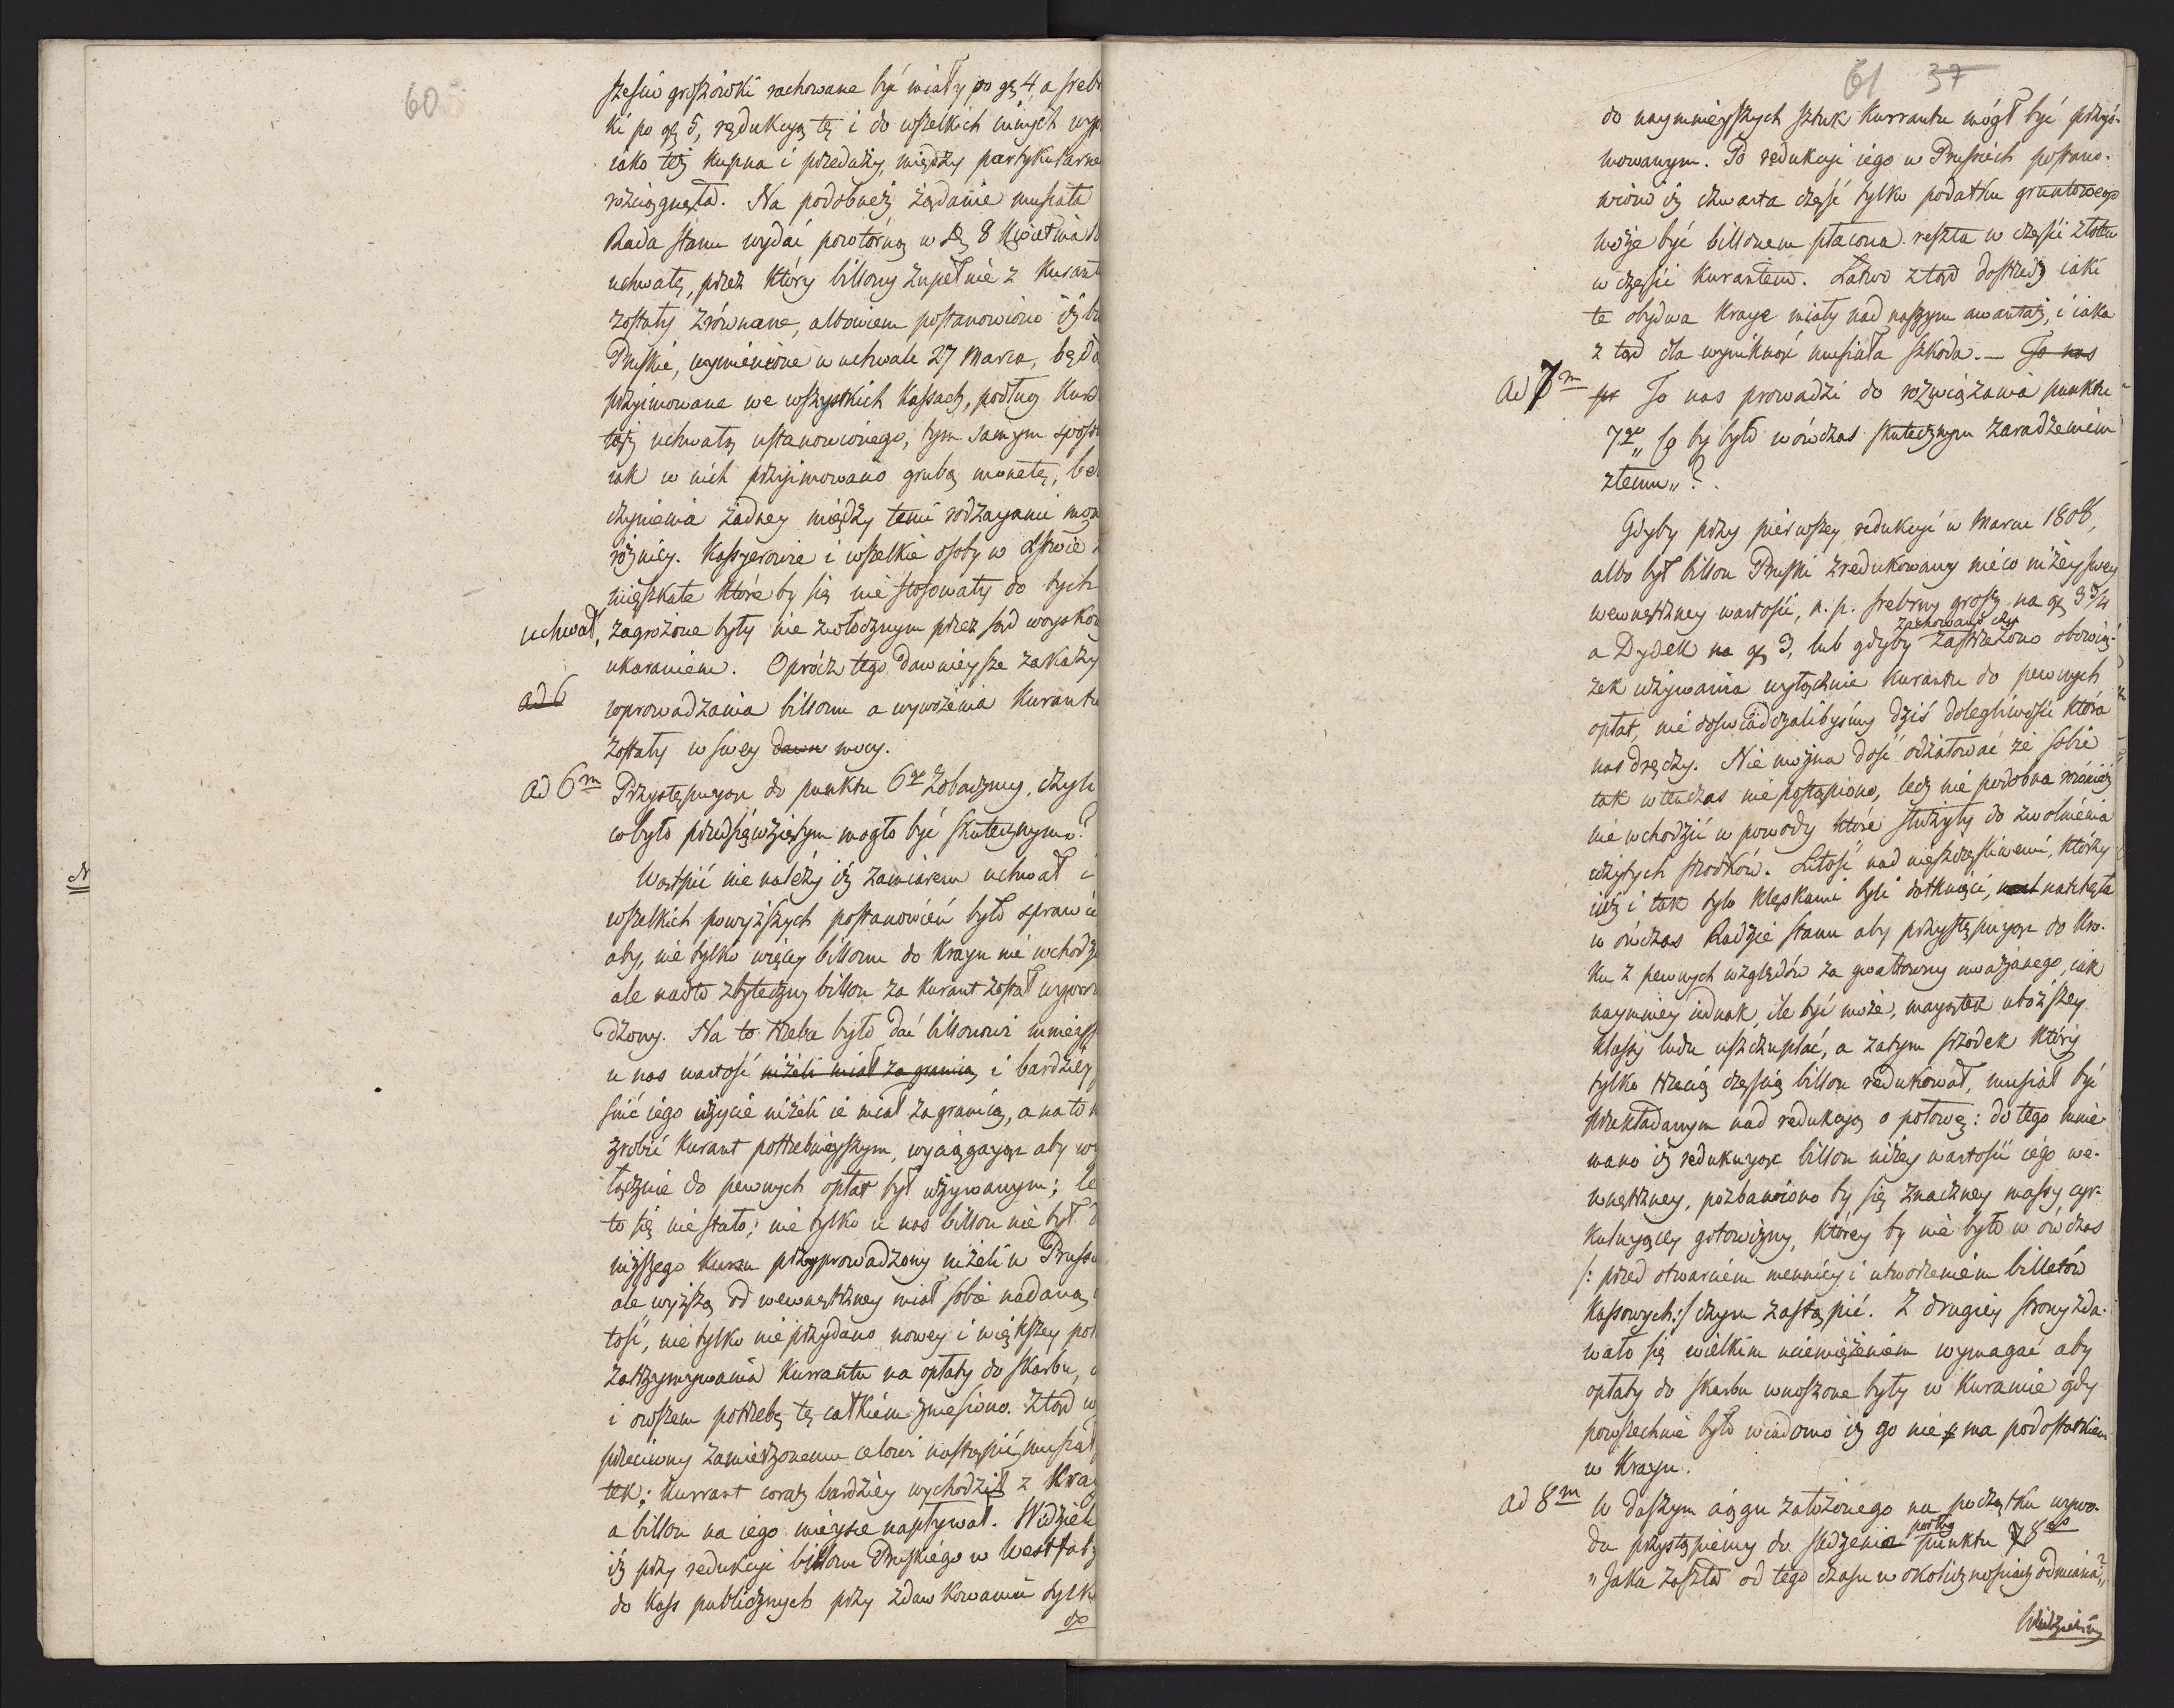 60
sześćio groszówki rachowane być miały po gr 4 a srebr
ki po gr 5, redukcyą tę i do wszelkich innych wyp
iako też kupna i przeduży, między partykularne
rozciągnęła. Na podobneż żądanie musiała
Rada Stanu wydać powtórną w d. 8 Kwietnia
uchwałę, przez który billony zupełnie z Kurant
zostały zrównane, albowiem postanowiono iż bi
Pruskie, wymienione w uchwale 27 Marca, będą
przyimowane we wszystkich Kassach, podług Kurs
tąż uchwałą ustanowionego, tym samym sposo
iak w nich przyimowano grubą monetę, be
czynienia żadney między temi rodzayami mon
różnicy. Kassyerowie i wszelkie osoby w Xstwie
mięszkałe które by się nie stosowały do tych
uchwał, zagrożone były nie zwłocznym przez sąd woysko
ukaraniem. Oprócz tego dawnieysze zakazy
ad 6 wprowadzania billonu a wywożenia Kurantu
zostały w swey dawn mocy.
ad 6m Przystępuiąc do punktu 6go Zobaczmy, czyli
co było przedsięwziętym mogło być skutecznym?
Wątpić nie należy iż zamiarem uchwał i
wszelkich powyższych postanowień było sprawić
aby, nie tylko więcey billonu do Kraju nie wchodz
ale nadto zbyteczny billon za Kurant został wypro
dzony. Na to trzeba było dać billonowi mnieysz
u nas wartość niżeli miał za granicą i bardziey
snić iego użycie niżeli ie miał za granicą, a na to
zrobić Kurant potrzebnieyszym, wyciągaiąc aby wy
łącznie do pewnych opłat był używanym; le
to się nie stało; nie tylko u nas billon nie był d
niższego Kursu przyprowadzony niżeli w Prussa
ale wyższą od wewnętrzney miał sobie nadaną
tość, nie tylko nie przydano nowey i większey pot
zatrzymywania Kurrantu na opłaty do skarbu,
i owszem potrzebę tę całkiem zniesiono. Ztąd w
przeciwny zamierzonemu celowi nastąpić musiał
tek; Kurrant coraz bardziey wychodził z Kray
a billon na iego mieysce napływał. Widzieli
iż przy redukcyi billonu Pruskiego w Westfaly
do Kass publicznych przy zdawkowaniu tylko
do
61 37
do naymnieyszych sztuk Kurrantu mógł być przyi-
mowanym. Po redukcyi iego w Prusiech postano-
wiono iż czwarta część tylko podatku gruntowego
może być billonem płacona reszta w części złotem
w części Kurantem. Łatwo ztąd dostrzedz iaki
te obydwa Kraje miały nad naszym awantaż, i iaka
z tąd dla wyniknąć musiała szkoda. — To nas
ad 7m pr To nas prowadzi do rozwiązania punktu
7go „Co by było wówczas skutecznym zaradzeniem
złemu„?
Gdyby przy pierwszey redukcyi w Marcu 1808,
albo był billon Pruski zredukowany nieco niżey swey
wewnętrzney wartości, n. p. srebrny grosz na gr 3 3/4
a Dydek na gr 3, lub gdyby zachowano czy zastrzeżono obowią-
zek używania wyłącznie Kurantu do pewnych
opłat, nie doświadczalibyśmy dziś dolegliwości która
nas dręczy. Nie można dość odżałować że sobie
tak wtenczas nie postąpiono, lecz nie podobna również
nie wchodzić w powody które służyły do zwolnienia
użytych środków. Litość nad nieszczęśliwemi, którzy
iuż i tak tylo klęskami byli dotknięci, natchnęła
w ówczas Radzie Stanu aby przystępuiąc do Kro-
ku z pewnych względów za gwałtowny uważanego, iak
naymniey iednak, ile być może, maiątek uboższey
klassy ludu uszczuplać, a zatym środek który
tylko trzecią częścią billon redukował, musiał być
przekładanym nad redukcyą o połowę: do tego mnie-
mano iż redukuiąc billon niżey wartości iego we-
wnętrzney, pozbawiono by się znaczney massy cyr-
kuluiącey gotowizny, którey by nie było w ówczas
/: przed otwarciem mennicy i utworzeniem billetów
Kassowych:/ czym zastąpić. Z drugiey strony zda-
wało się wielkim uciemiężeniem wymagać aby
opłaty do skarbu wnoszone były w Kurancie gdy
powszechnie było wiadomo iż go nie ma podostatkiem
w Kraju.
ad 8m W dalszym ciągu założonego na początku wywo-
du przystąpiemy do śledzenia podług punktu 8go
„Jaka zaszła od tego czasu w okolicznościach odmiana?„
Widzieliśmy